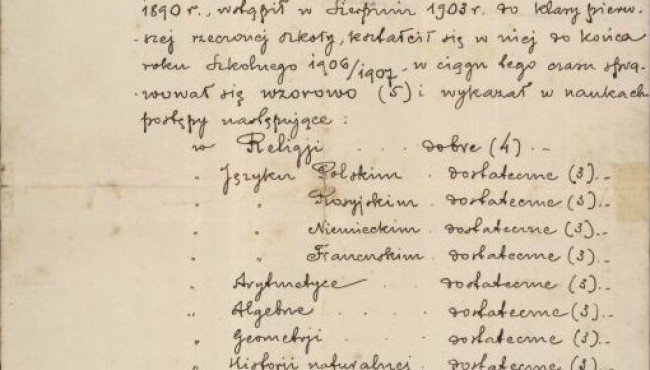 1890 r., wstąpił w Sierpniu 1903 r. do klasy pierw-
szej rzeczonej szkoły, kształcił się w niej do końca
roku szkolnego 1906/1907. w ciągu tego czasu spra-
wował się wzorowo (5) i wykazał w naukach
postępy następujące:
w Religji . . . dobre (4) . –
" Języku Polskim . dostateczne (3) . –
" " Rosyjskim . dostateczne (3) . –
" " Niemieckim . dostateczne (3) . –
" " Francuskim . dostateczne (3) . –
" Arytmetyce . . dostateczne (3) . –
" Algebrze . . . dostateczne (3) . –
" Geometrji . . dostateczne (3) . –
" Historji naturalnej . dostateczne (3) . –